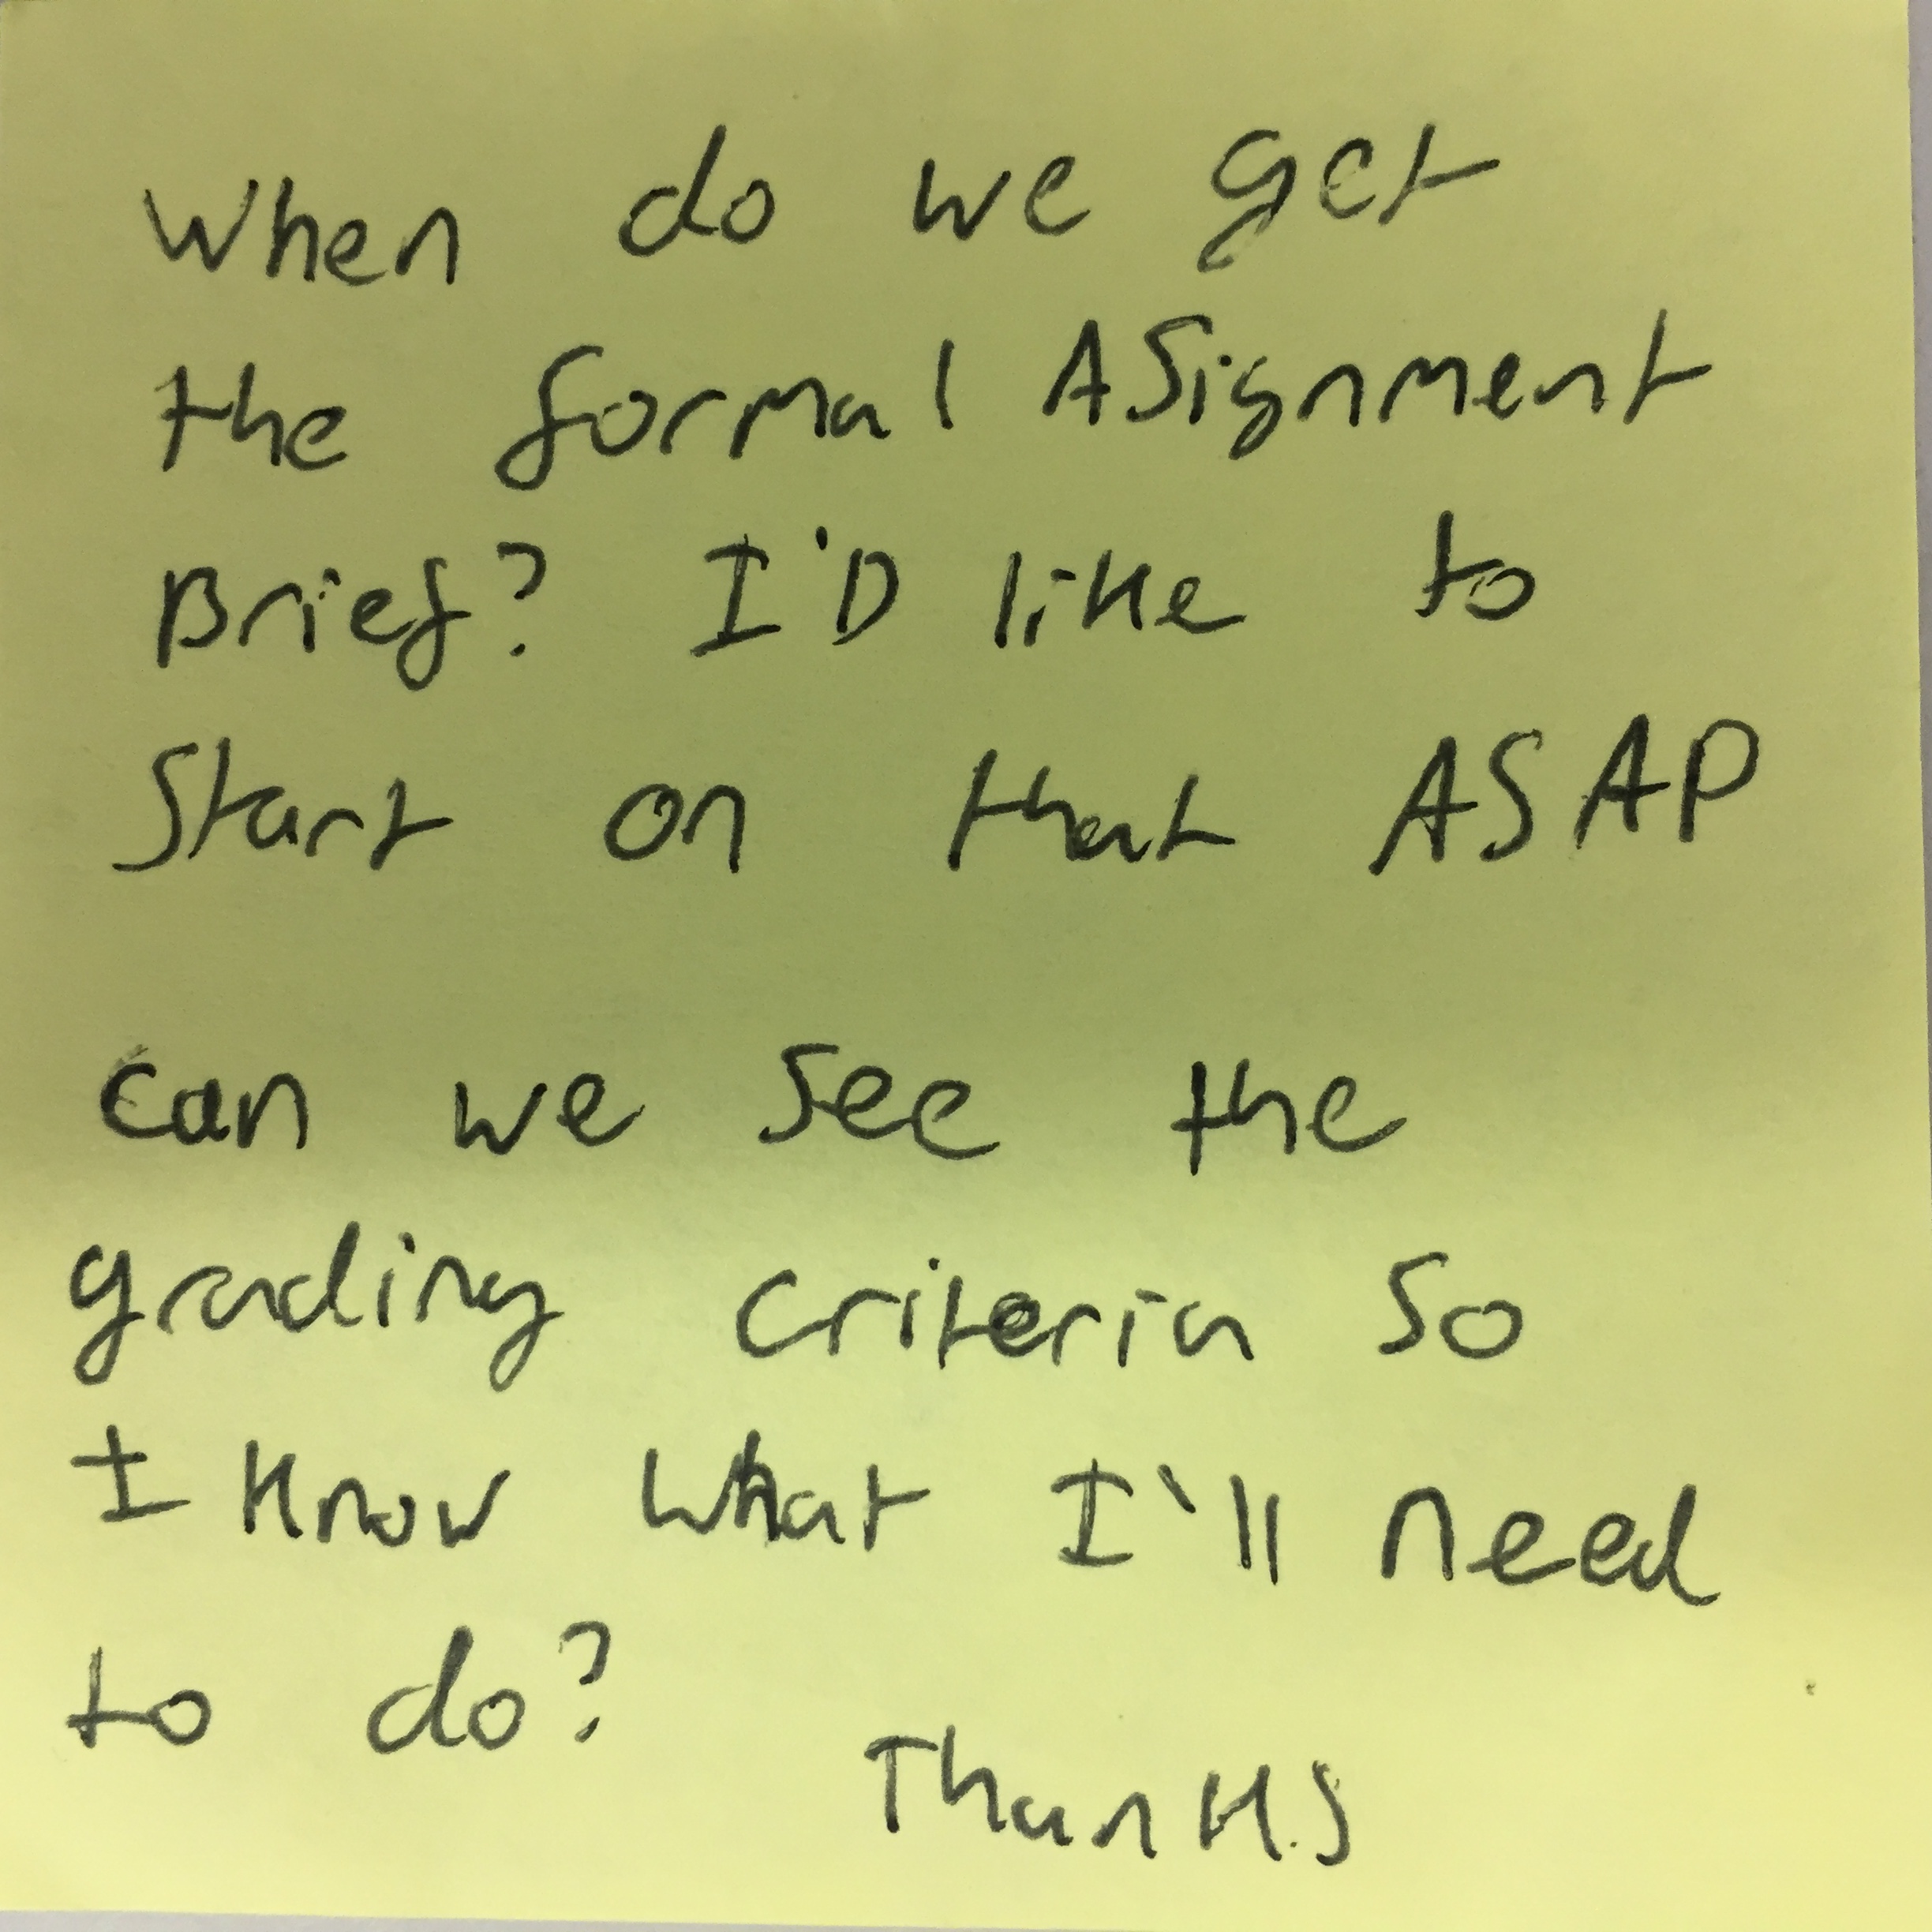 When do we get
the formal ASignment
Brief? I'D like to
Start on that ASAP
can we see the
grading criteria so
I know what I'll need
to do?
Thanks